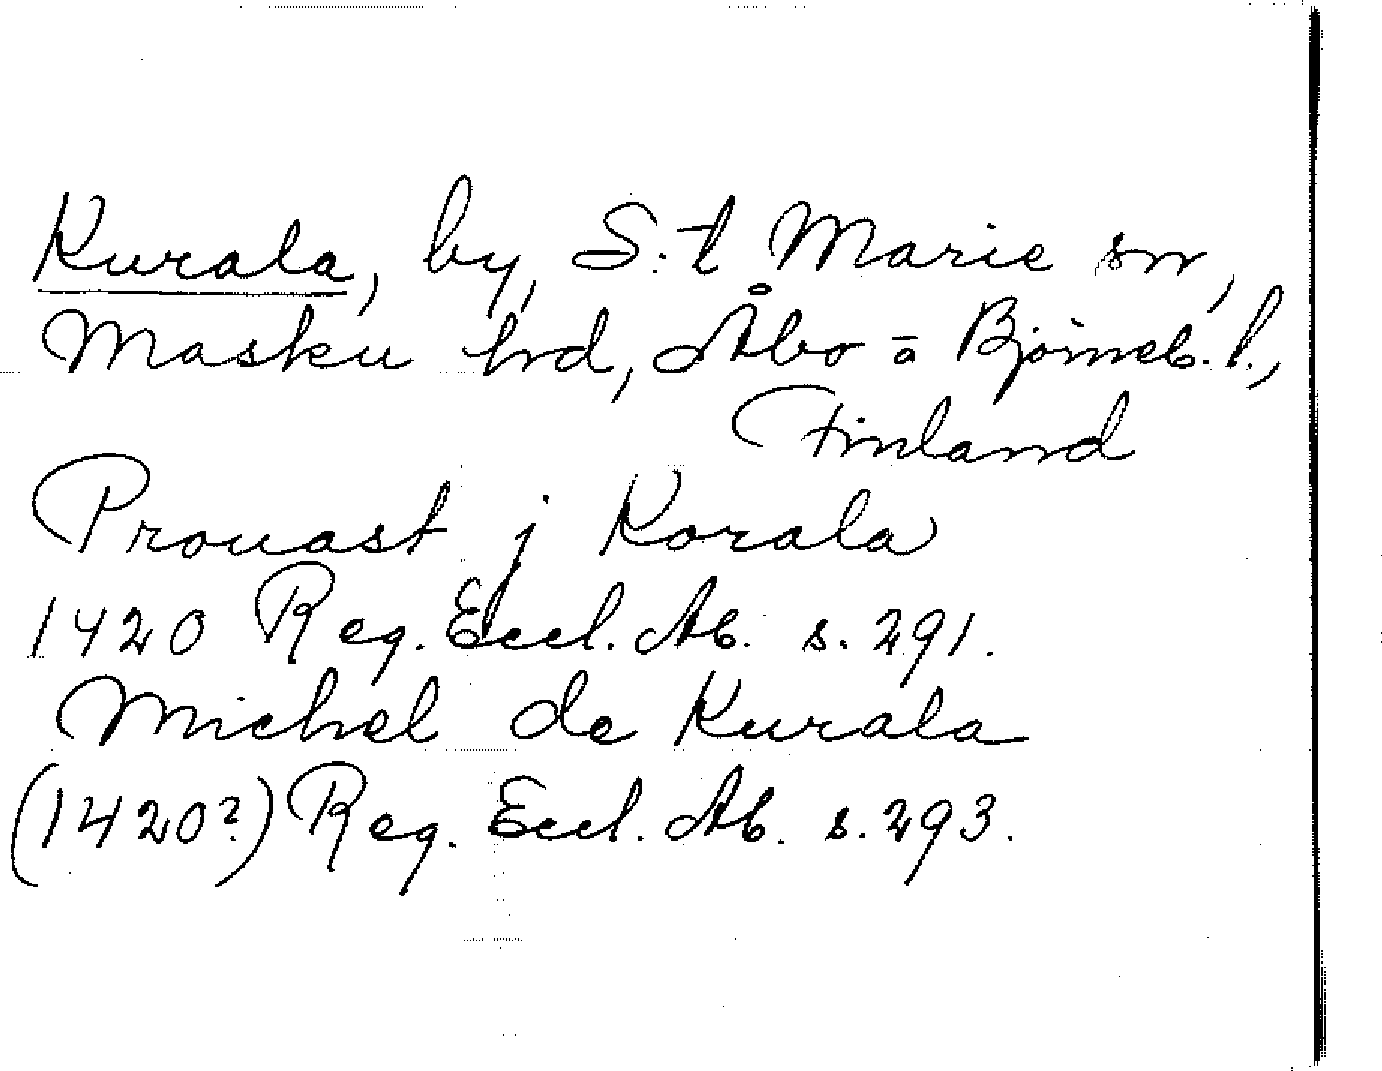 Kurala, by, S:t Marie sn,
Masku hd, Åbo- o Björneb. l.,
Finland
Prouast j Korala
1420 Reg. Eccl. Ab. s. 291.
Michel de Kurala
(1420?) Reg. Eccl. Ab. s. 293.